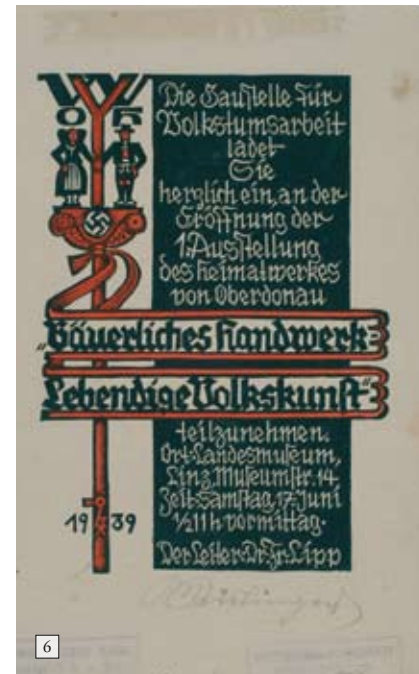 Die Gaustelle für
Volkstumsarbeit
ladet
Sie
herzlich ein, an der
Eröffnung der
1. Ausstellung
des Heimatwerkes
von Oberdonau
„Bäuerliches Handwerk-
Lebendige Volkskunst“
teilzunehmen.
Ort: Landesmuseum,
Linz, Museumstr. 14.
Zeit: Samstag, 17. Juni
½11 h vormittag.
Der Leiter: Dr. Fr. Lipp
19 39
6